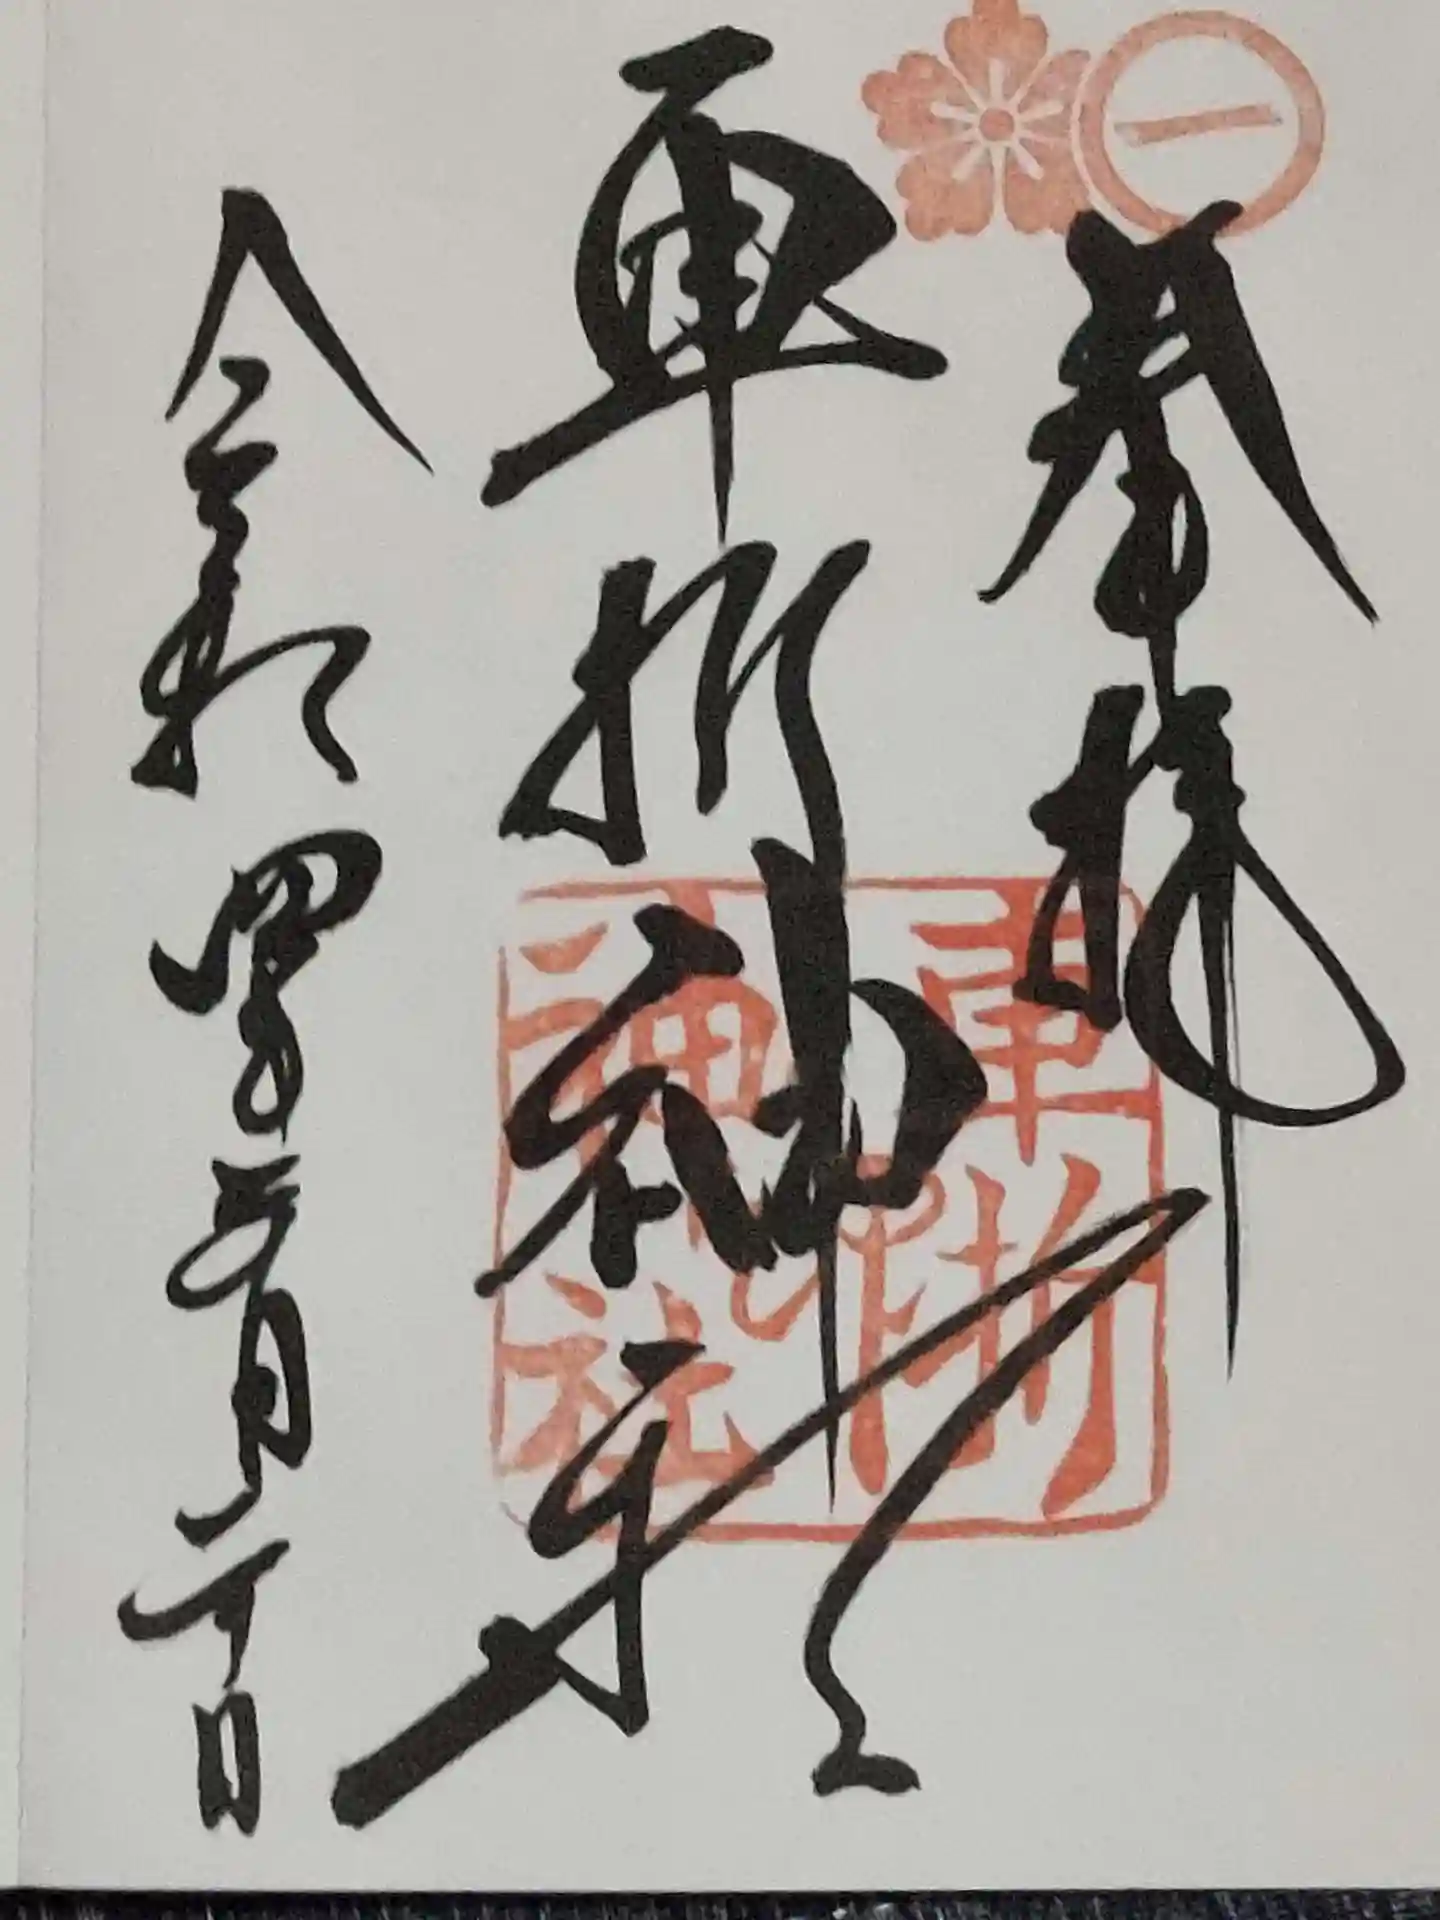 奉拝
車折神社
令和四年
月
日
一
車折
神社